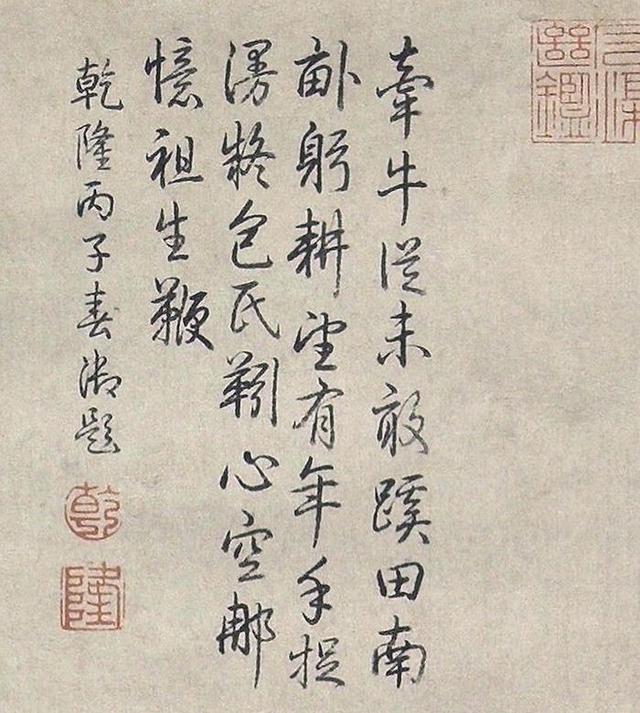 牽牛從未敢蹊田南
畝躬耕望有年手捉
漫疑包氏靷心空那
憶祖生鞭
乾隆丙子春御題
乾
隆